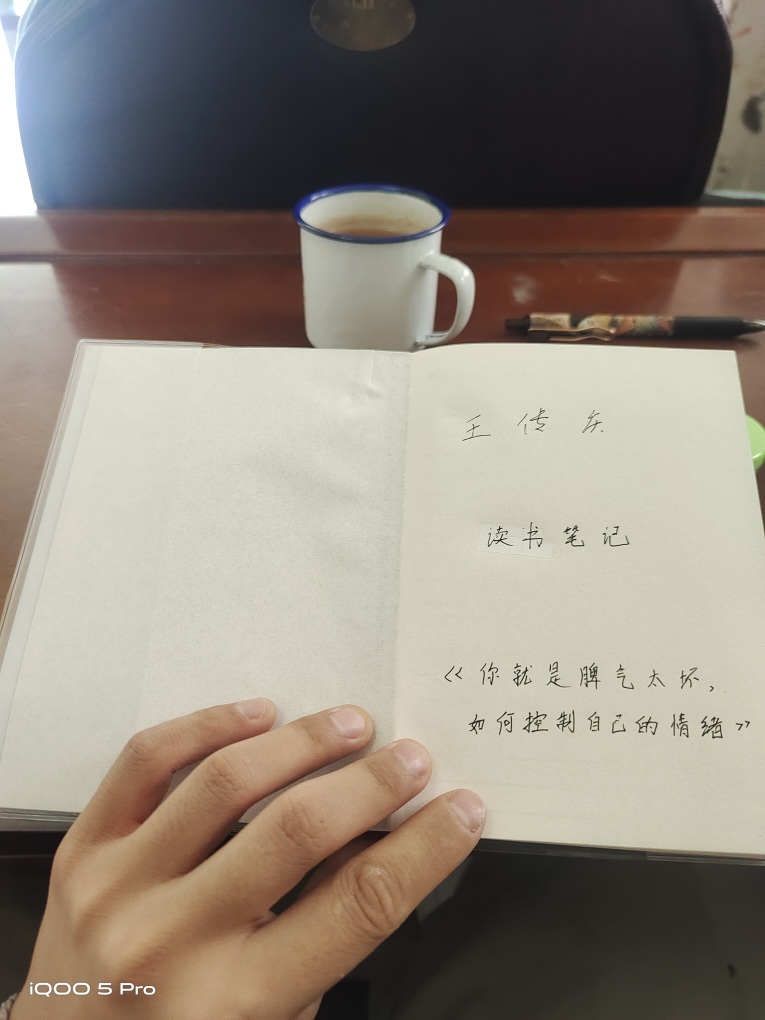 王传矢
读书笔记
《你就是脾气太坏，
如何控制自己的情绪》
iQOO 5 Pro